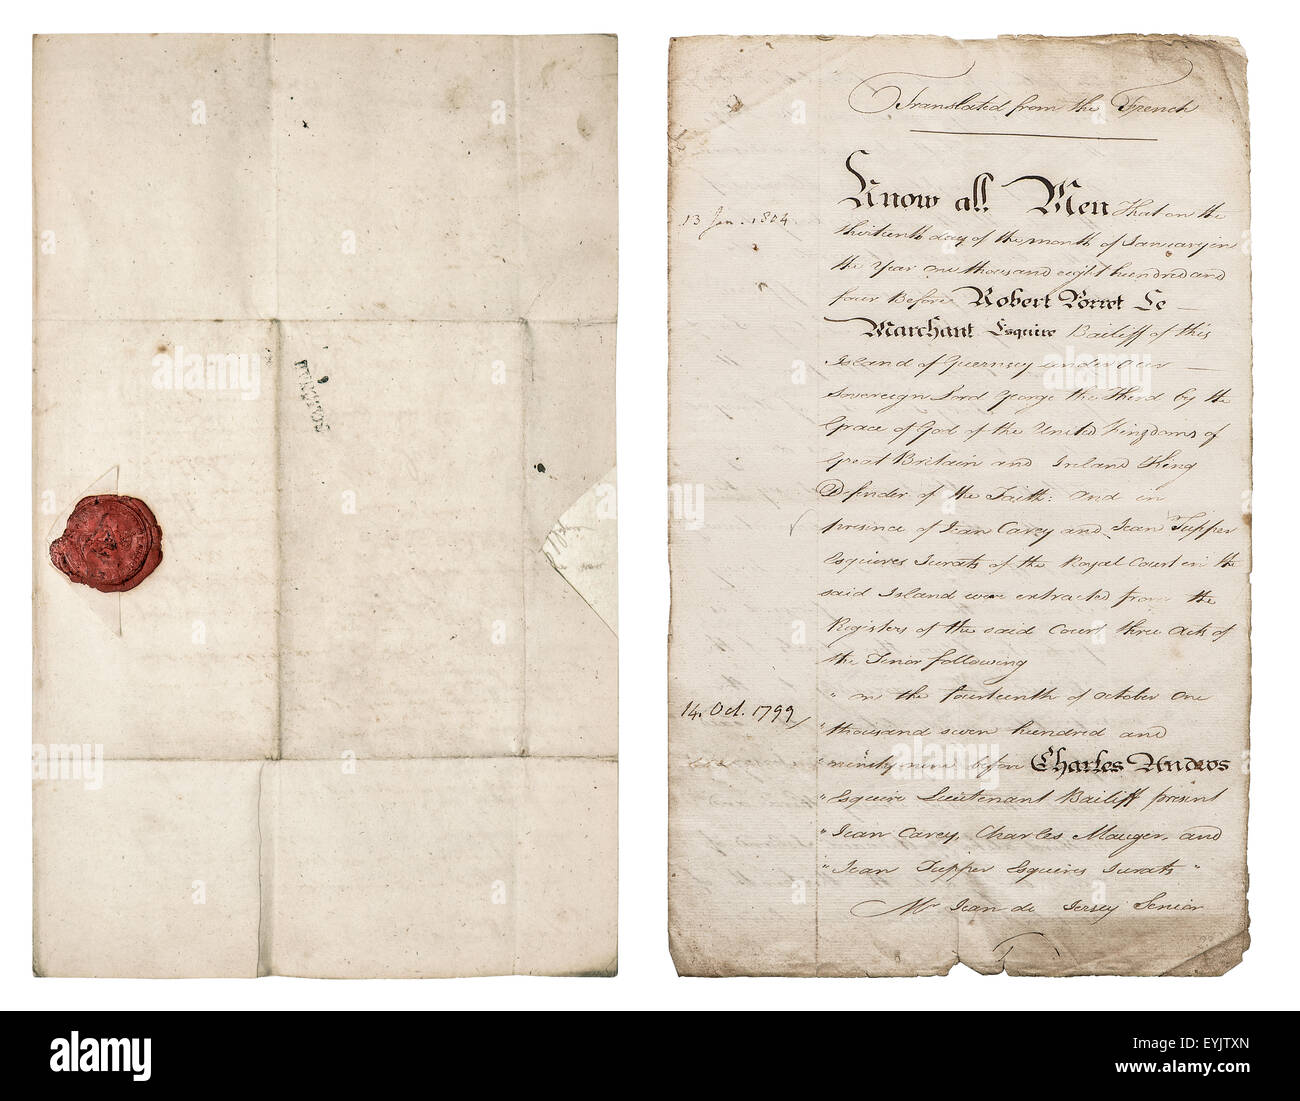 Translated from the French
Know all Men That on the
13 Jan. 1804
thirteenth day of the month of January in
the Year One thousand eight hundred and
four Before Robert Porret Le
Marchant Esquire Bailiff of this
Island of Guernsey under our
Sovereign Lord George the Third by the
Grace of God of the United Kingdoms of
Great Britain and Ireland King
Defender of the Faith: and in
presence of Jean Carey and Jean Tupper
Esquires Jurats of the Royal Court in the
said Island were extracted from the
Registers of the said Court three Acts of
the Tenor following
" on the fourteenth of October One
14. Oct. 1799
" thousand seven hundred and
" ninety nine before Charles Andros
" Esquire Lieutenant Bailiff present
" Jean Carey, Charles Mauger, and
" Jean Tupper Esquires Jurats "
Mr Jean de Jersey Senior
alamy
alamy stock photo
EYJTXN
www.alamy.com